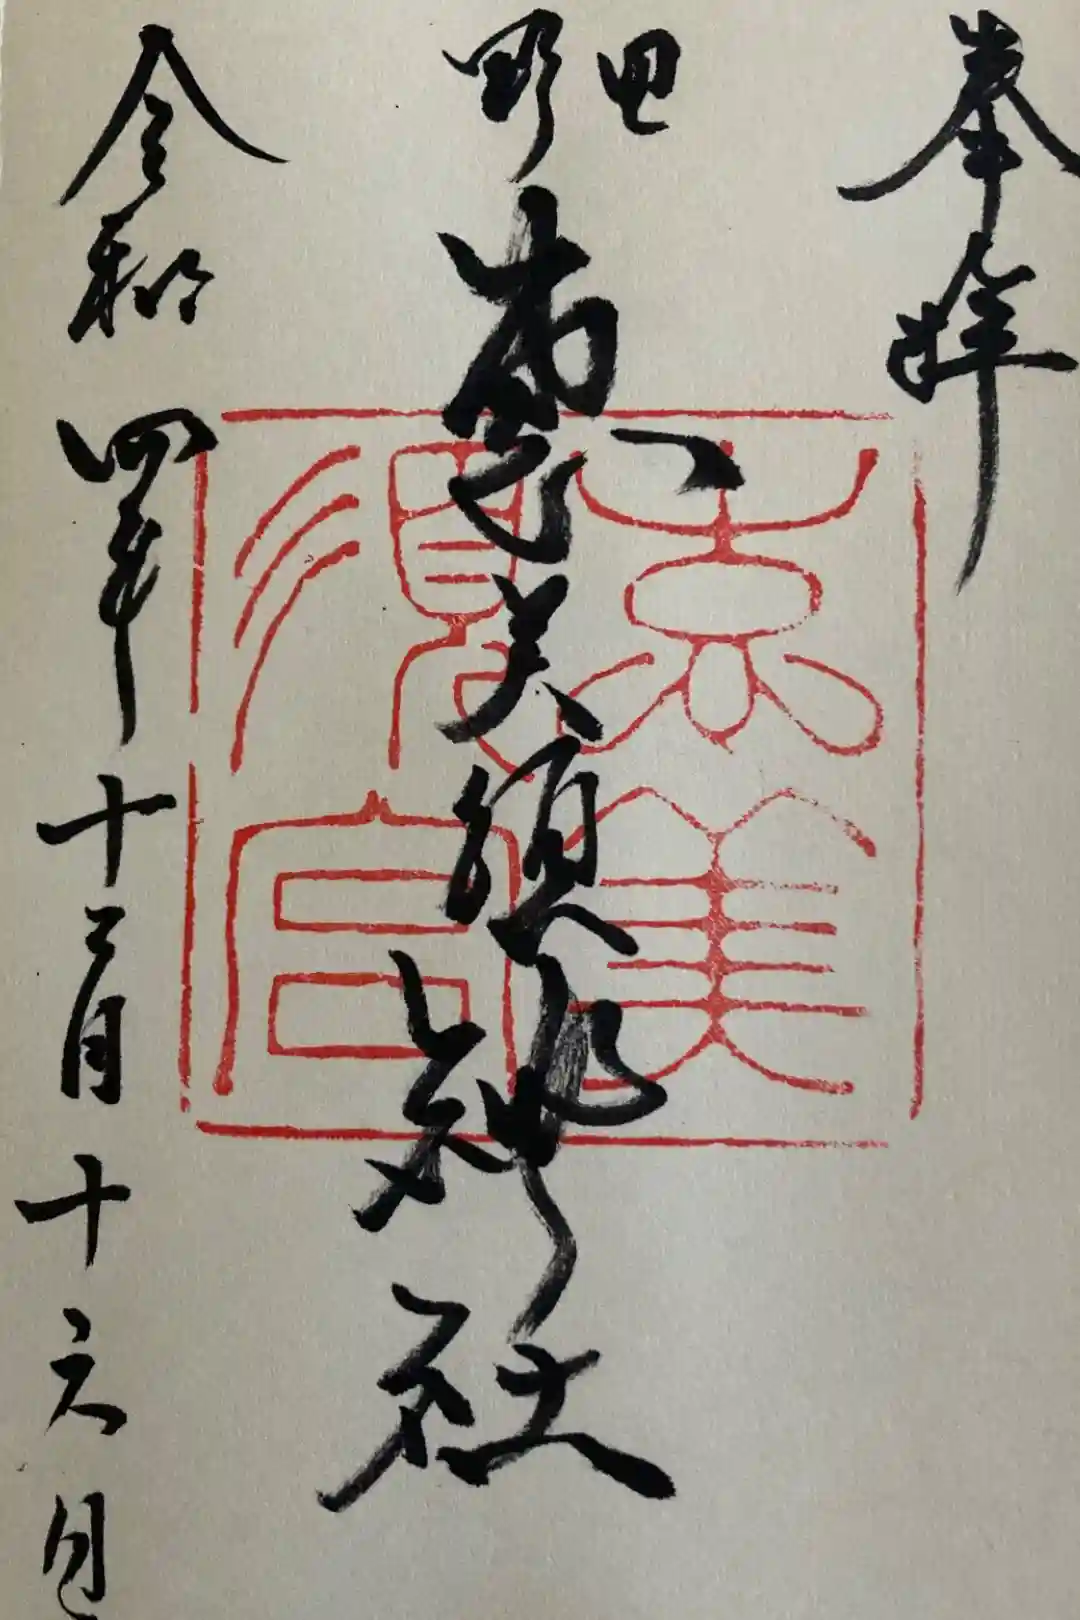 奉拝
野田
恵美須神社
令和四年十二月十六日
恵美須宮